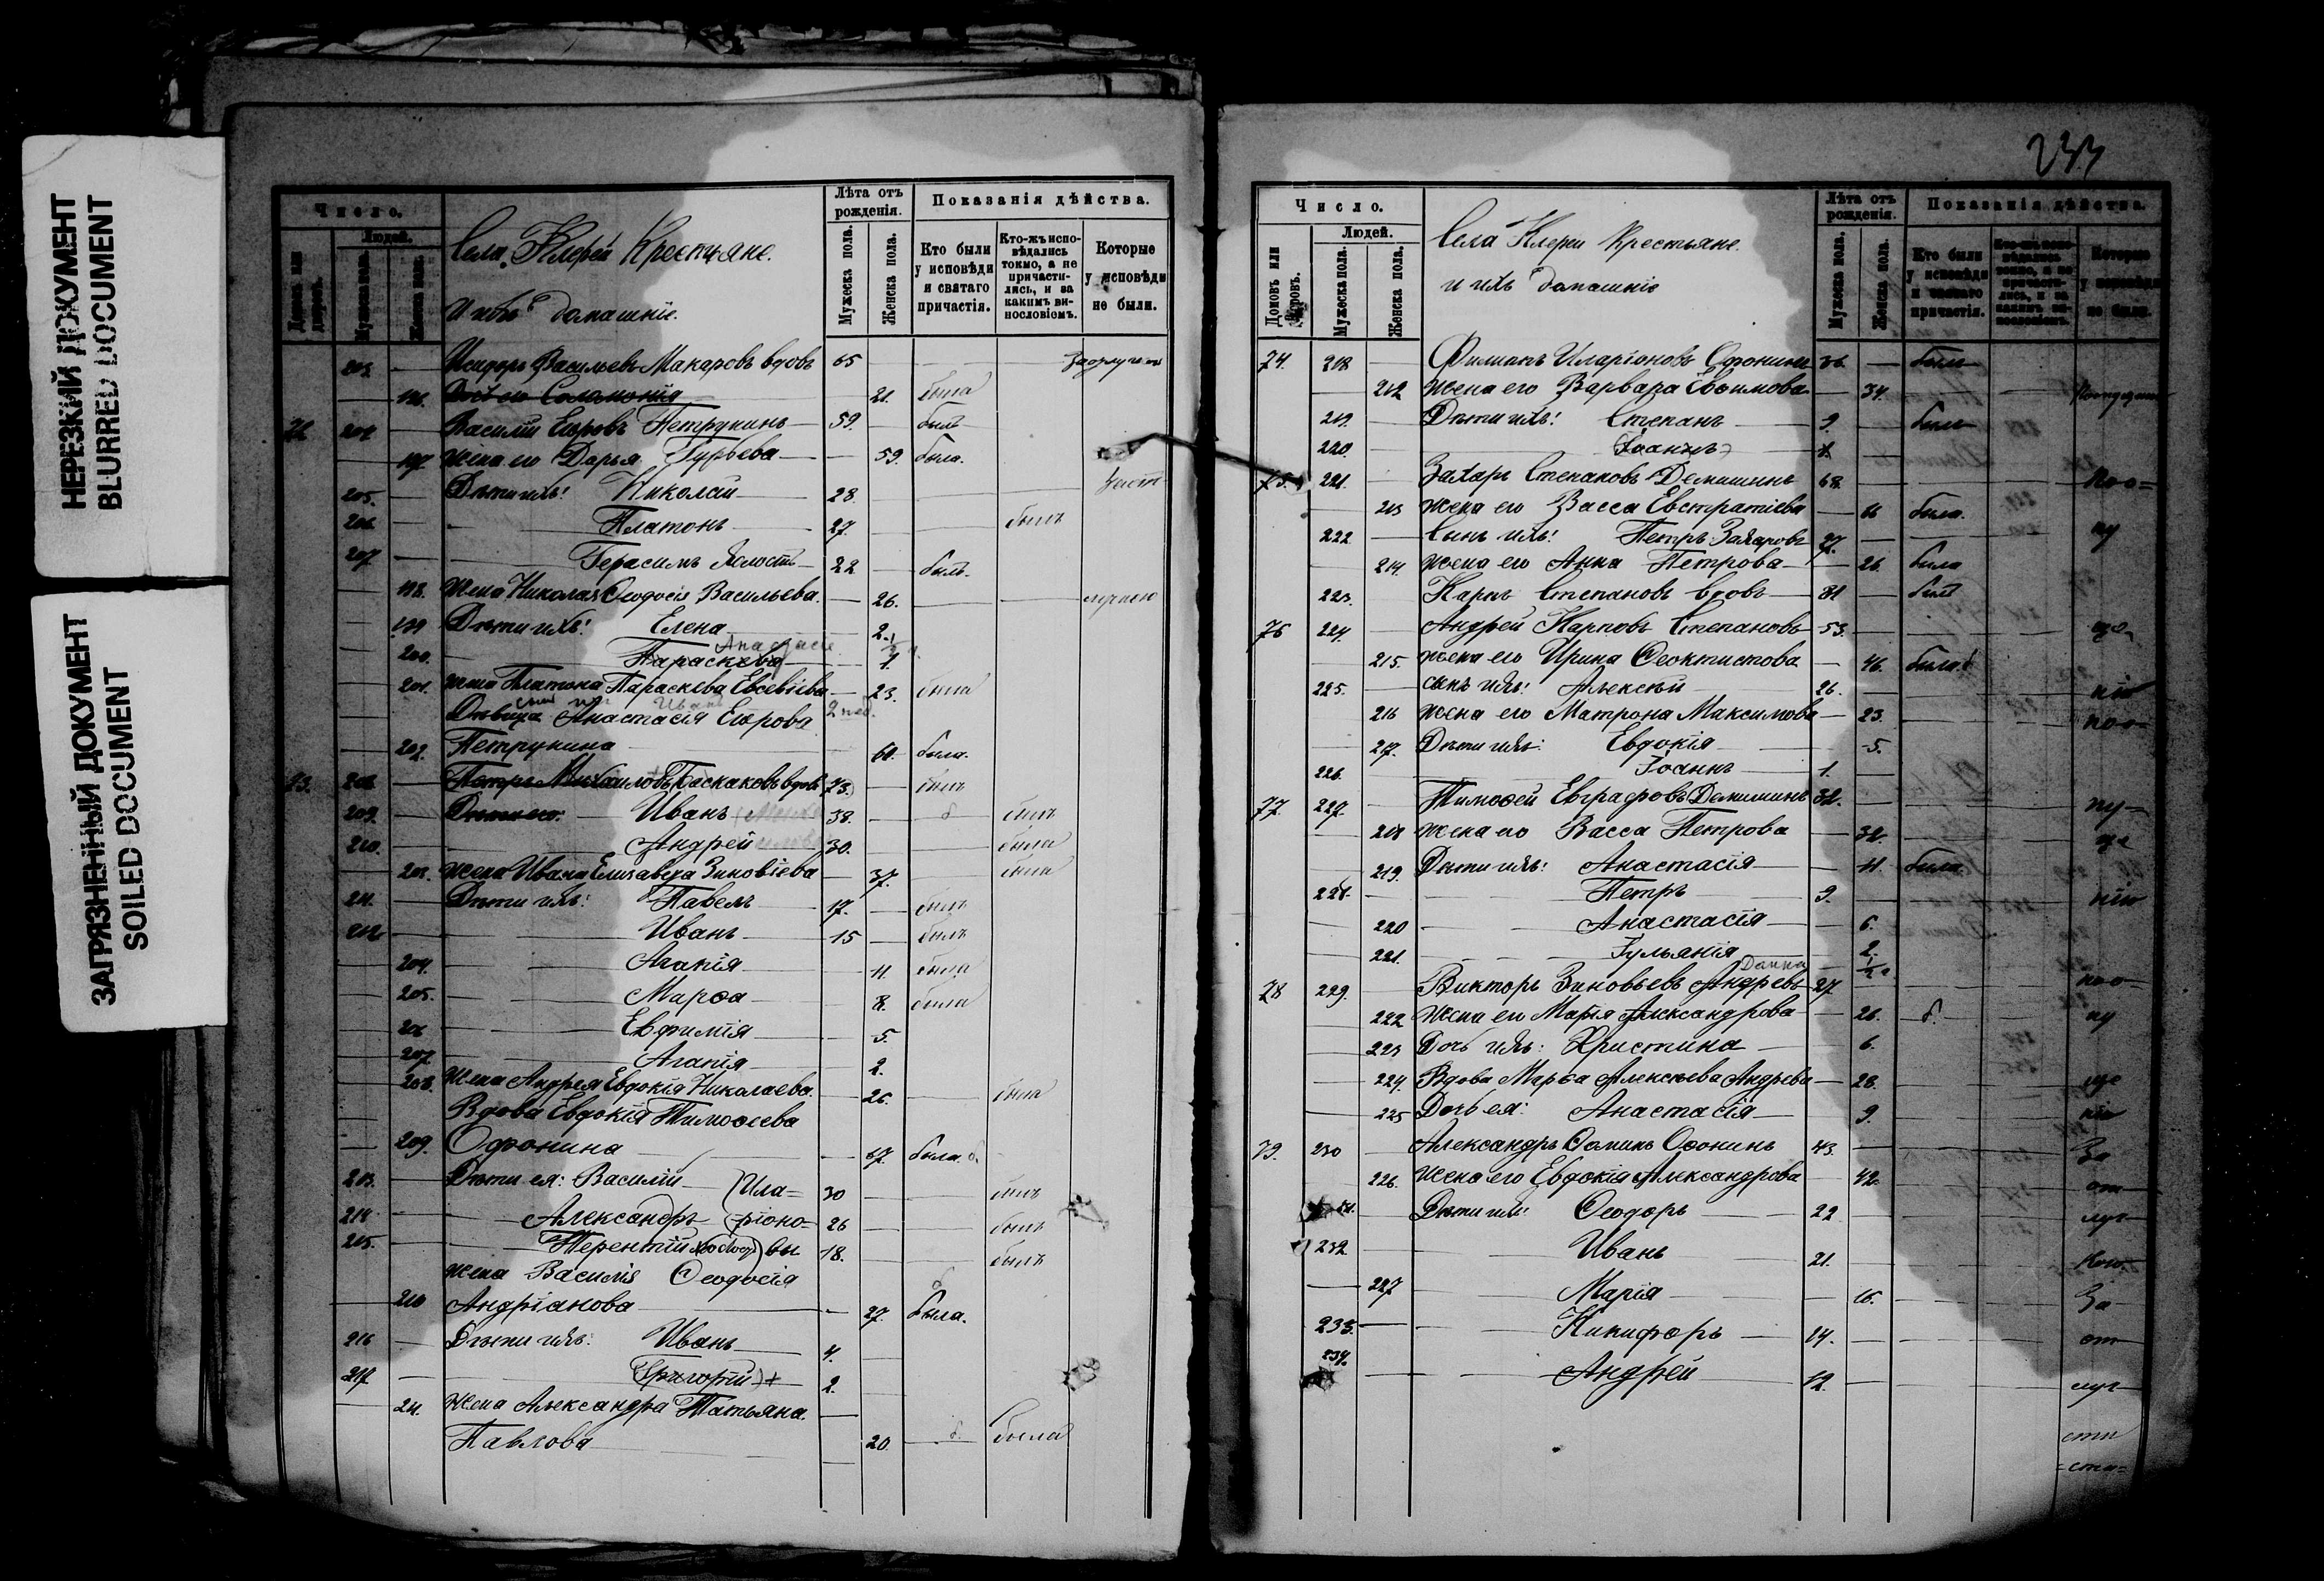 НЕРЕЗКИЙ ДОКУМЕНТ
BLURRED DOCUMENT
ЗАГРЯЗНЕННЫЙ ДОКУМЕНТ
SOILED DOCUMENT
Число. Людей. Лѣта отъ рожденія. Показанія дѣйства.
Домовъ или дворовъ. Мужеска пола. Женска пола. Мужеска пола. Женска пола. Кто были у исповѣди и святаго причастія. Кто-жъ исповѣдались токмо, а не причастились, и за какимъ винословіемъ. Которые у исповѣди не были.
Села Клерей Крестьяне.
и ихъ домашніе.
203. Исидоръ Васильевъ Макаровъ вдовъ 65
196. Соломонія 21. была
204 Василій Егоровъ Петрунинъ 59. былъ
197 Жена его Дарья Гурьева 59. была.
205. Дѣти ихъ: Николай 28.
206 Платонъ 27. былъ
207 Герасимъ 22 былъ.
198. Жена Николая Ѳеодосія Васильева. 26.
199 Дѣти ихъ: Елена 2.
200. Параскева Анастасія 1
201. Жена Платона Параскева Евсевіева 23. была
Дѣвица Анастасія Егрова
202. Петрунина 60. была.
73. 208 Петръ Михаиловъ Баскаковъ вдовъ 73. былъ
209. Дѣти его: Иванъ 38. былъ
210. Андрей 30. была
203. Жена Ивана Елизавета Зиновіева 37. была
211. Дѣти ихъ: Павелъ 17. былъ
212 Иванъ 15 былъ
204. Агапія 11. была
205. Марѳа 8. была
206 Евфимія 5.
207 Агапія 2.
208. Жена Андрея Евдокія Николаева. 26. была
Вдова Евдокія Тимоѳеева
209. Офонина 67. была. б.
213. Дѣти ея: Василій (Ила= 30 былъ
214 Александръ ріоно= 26 былъ
215. Терентій вы 18. былъ
Жена Василія Ѳеодосія
210 Андріанова 27. была.
216 Дѣти ихъ: Иванъ 4.
217 (Григорій)+ 2.
211. Жена Александра Татьяна.
Павлова 20. б. была
233
Число. Людей. Лѣта отъ рожденія. Показанія дѣйства.
Домовъ или дворовъ. Мужеска пола. Женска пола. Мужеска пола. Женска пола. Кто были у исповѣди и святаго причастія. Кто-жъ исповѣдались токмо, а не причастились, и за какимъ винословіемъ. Которые у исповѣди не были.
Села Клереи Крестьяне.
и ихъ домашніе
74. 218 Филипъ Иларіоновъ Офонинъ 36. былъ
212 Жена его Варвара Евѳимова 34.
219. Дѣти ихъ: Степанъ 9. былъ
220. (Іоаннъ)
75. 221. Захаръ Степановъ Демишинъ 68.
213 Жена его Васса Евстратіева 66 была.
222 Сынъ ихъ: Петръ Захаровъ 27.
214. Жена его Анна Петрова 26. была
223. Карпъ Степановъ вдовъ 81 былъ
76 224. Андрей Карповъ Степановъ 53.
215. Жена его Ирина Ѳеоктистова 46. была
225. Сынъ ихъ: Алексѣй 26.
216 Жена его Матрона Максимова 23.
217. Дѣти ихъ: Евдокія 5.
226. Іоаннъ 1.
77. 227. Тимоѳей Евграфовъ Демишинъ 32.
218 Жена его Васса Петрова 32.
219. Дѣти ихъ: Анастасія 11. была.
228. Петръ 9.
220 Анастасія 6.
221. Іульянія 2.
78 229. Викторъ Зиновьевъ Андревъ 27
222 Жена его Марія Александрова 26. б.
223 Дочь ихъ: Христина 6.
224. Вдова Марѳа Алексѣева Андрева 28.
225 Дочь ея: Анастасія 9.
79. 230 Александръ Ѳоминъ Офонинъ 43.
226. Жена его Евдокія Александрова 42.
Дѣти ихъ: Ѳеодоръ 22
232 Иванъ 21.
227 Марія 16.
233. Никифоръ 14.
234. Андрей 12.